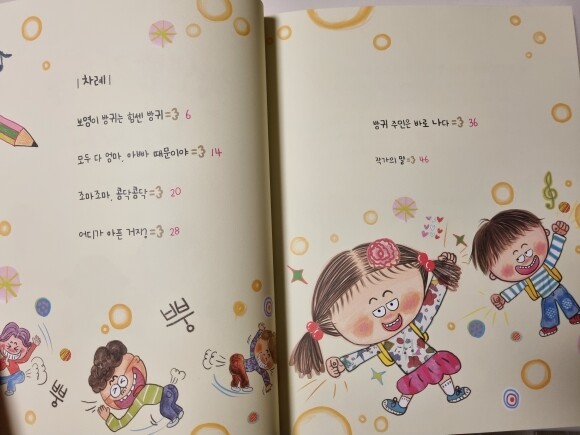 |차례|
보영이 방귀는 힘센 방귀=3 6
모두 다 엄마, 아빠 때문이야=3 14
조마조마, 콩닥콩닥=3 20
어디가 아픈 거지?=3 28
뿡
뿡
방귀 주인은 바로 나다=3 36
작가의 말=3 46